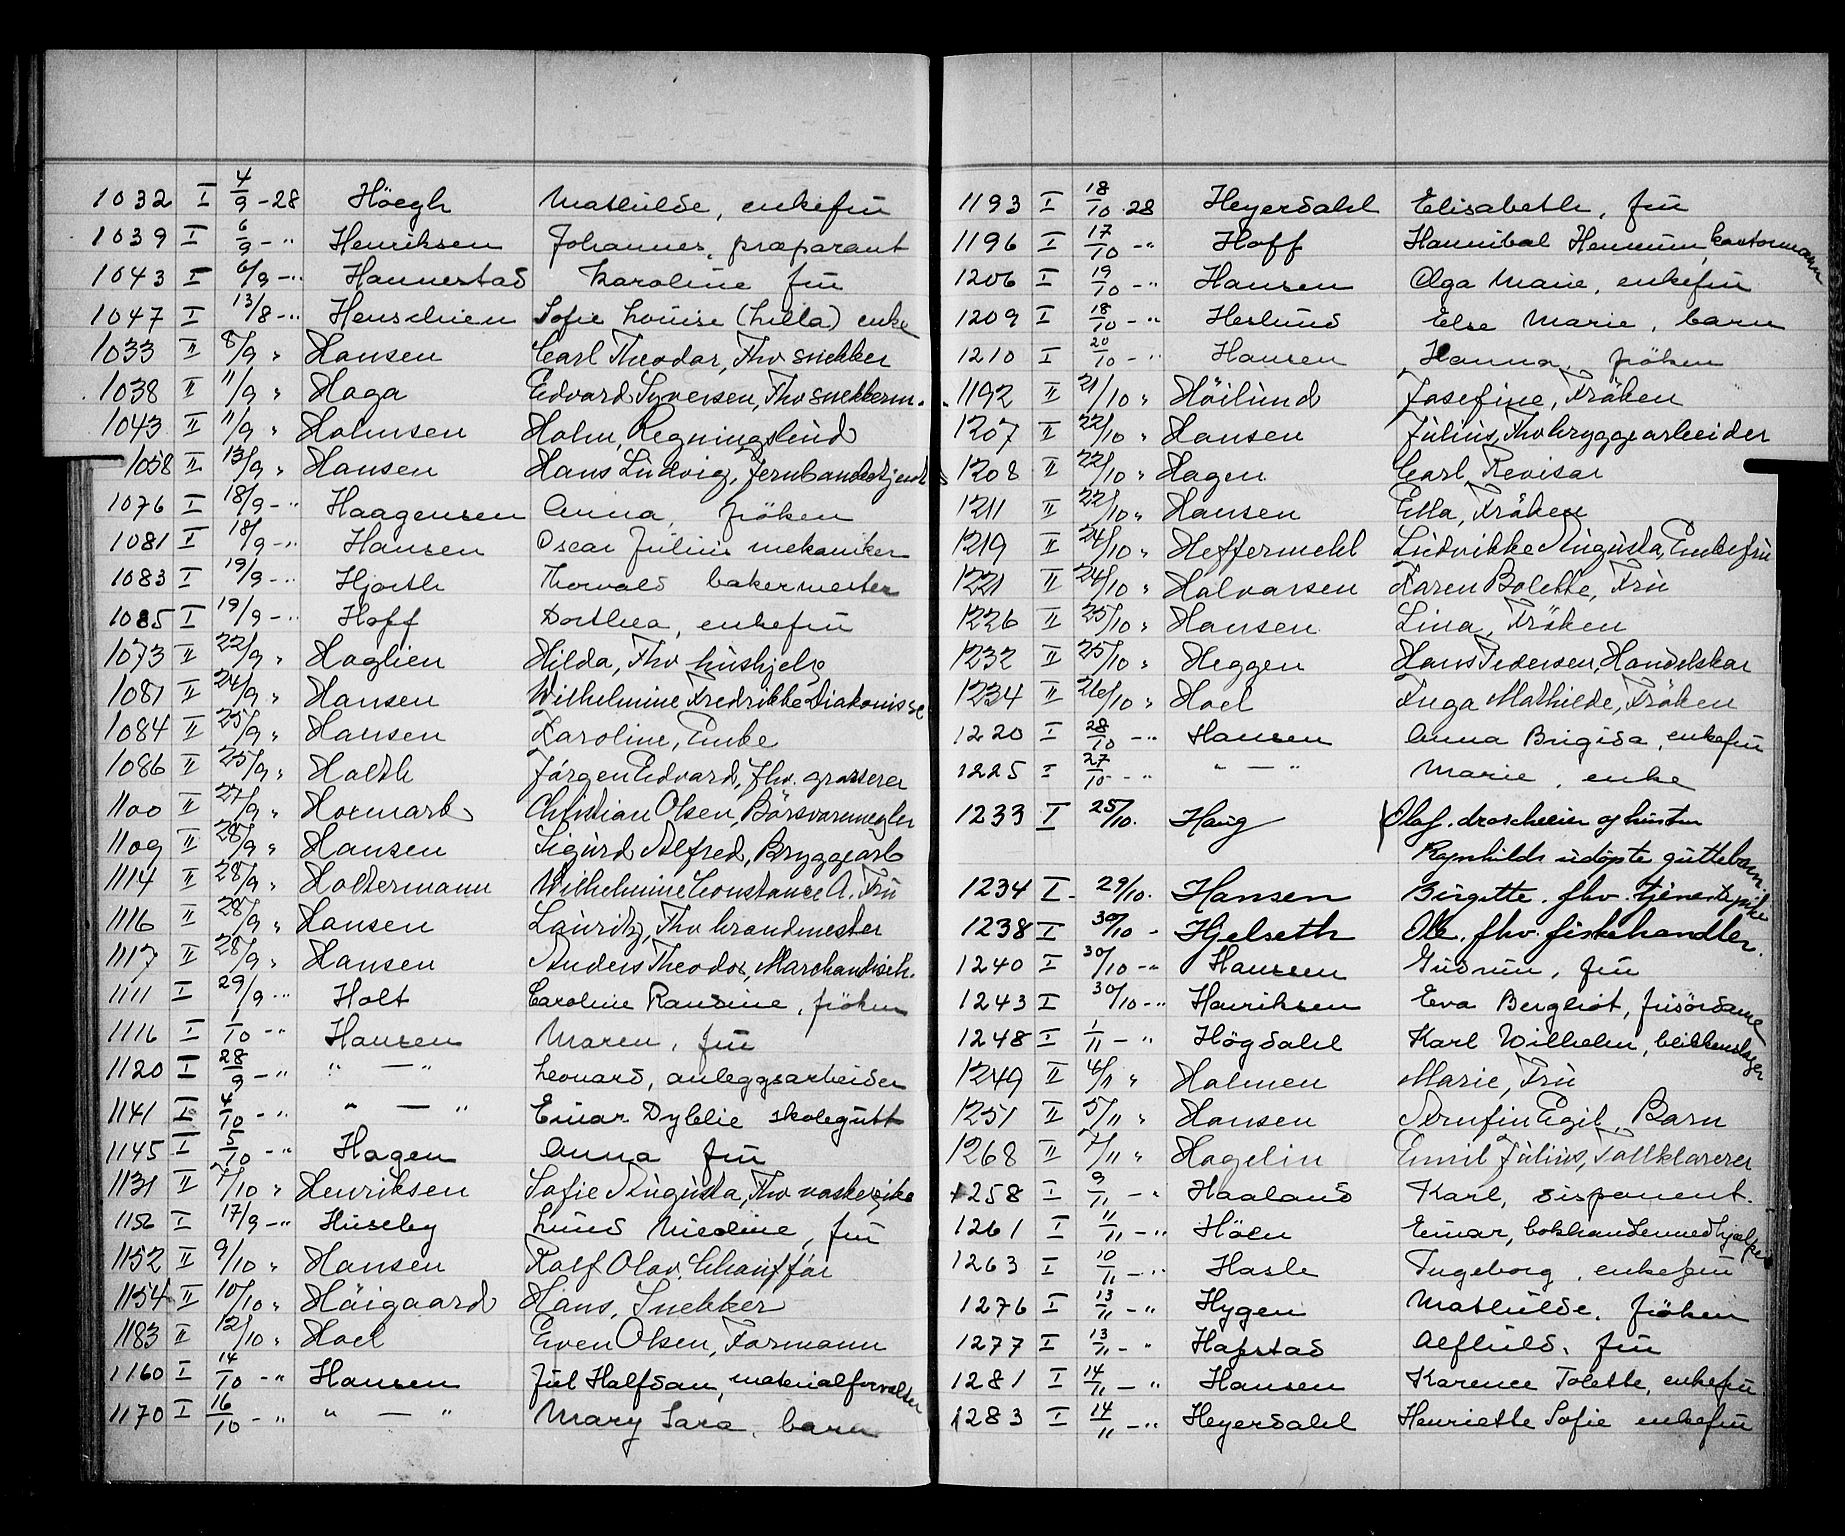 1032 I 4/9 - 28 Höegh Mathilde, enkefru
1039 I 6/9 - " Henriksen Johannes, præparant
1043 I 6/9 - " Hannestad Karoline fru
1047 I 13/8 - " Henschien Sofie Louise (Lilla) enke
1033 II 8/9 " Hansen Carl Theodor, Fhv snekker
1038 II 11/9 " Haga Edvard Syversen, Fhv snekkerm.
1043 II 11/9 " Holmsen Holm, Regningsbud
1058 II 13/9 " Hansen Hans Ludvig, Jernbanebetjent
1076 I 18/9 - " Haagensen Anna, fröken
1081 I 18/9 - " Hansen Oscar Julius mekaniker
1083 I 19/9 - " Hjorth Thorvald bakermester
1085 I 19/9 - " Hoff Dorthea, enkefru
1073 II 22/9 " Haglien Hilda, Fhv hushjelp
1081 II 24/9 " Hansen Wilhelmine Fredrikke Diakonisse
1084 II 25/9 " Hansen Karoline, Enke
1086 II 25/9 " Holth Jörgen Edvard, fhv. grosserer
1100 II 27/9 " Hovmark Christian Olsen, Börsvaremegler
1109 II 28/9 " Hansen Sigurd Alfred, Bryggearb
1114 II 28/9 " Holtermann Wilhelmine Constance A. Fru
1116 II 28/9 " Hansen Lauritz, Fhv brandmester
1117 II 28/9 " Hansen Anders Theodor, Marchantisch.
1111 I 29/9 - " Holt Caroline Randine, fröken
1116 I 1/10 - " Hansen Maren, fru
1120 I 28/9 - " " — " Leonard, anleggsarbeider
1141 I 4/10 - " " — " Einar Dyblie skolegutt
1145 I 5/10 - " Hagen Anna fru
1131 II 7/10 " Henriksen Sofie Augusta, Fhv vaskepike
1156 I 17/9 - " Huseby Lund Nicoline, fru
1152 II 9/10 " Hansen Rolf Olav, Chauffør
1154 II 10/10 " Höigaard Hans, Snekker
1183 II 12/10 " Hoel Even Olsen, Formann
1160 I 14/10 - " Hansen Jul Halfdan, materialforvalter
1170 I 16/10 - " " — " Mary Sara, barn
1193 I 18/10 - 28 Heyerdahl Elisabeth, fru
1196 I 17/10 - " Hoff Hannibal Hennum, kontormann
1206 I 19/10 - " Hansen Olga Marie, enkefru
1209 I 18/10 - " Heslund Else Marie, barn
1210 I 20/10 - " Hansen Hanna, fröken
1192 II 21/10 " Höilund Josefine, Fröken
1207 II 22/10 " Hansen Julius, Fhv bryggearbeider
1208 II 22/10 " Hagen Carl Revisor
1211 II 22/10 " Hansen Ella, Fröken
1219 II 24/10 " Heffermehl Ludvikke Augusta, Enkefru
1221 II 24/10 " Halvorsen Karen Bolette, Fru
1226 II 25/10 " Hansen Lina, Fröken
1232 II 25/10 " Heggen Hans Pedersen, Handelskar
1234 II 26/10 " Hoel Inga Mathilde, Fröken
1220 I 28/10 - " Hansen Anna Brigida, enkefru
1225 I 27/10 - " " — " Marie, enke
1233 I 25/10. Haug Olaf. droscheeier og hustru
Ragnhilds udöpte guttebarn.
1234 I. 29/10. Hansen Birgitte. fhv. tjenestepike
1238 I 30/10 - Hjelseth Ole. fhv. fiskehandler.
1240 I 30/10 - " Hansen Gudrun, fru
1243 I 30/10 - " Henriksen Eva Bergliot, frisördame
1248 I 1/11 - " Högdahl Karl Wilhelm, blikkenslager
1249 II 6/11 " Holmen Marie, Fru
1251 II 5/11 " Hansen Arnfin Egil, Barn
1268 II 7/11 " Hagelin Emil Julius, Tollklarerer
1258 I 9/11 - " Haaland Karl, disponent.
1261 I 11/11 - " Höen Einar, bokhandlermedhjælper
1263 I 10/11 - " Hasle Ingeborg, enkefru
1276 I 13/11 - " Hygen Mathilde, fröken
1277 I 13/11 - " Hafstad Alfhild, fru
1281 I 14/11 - " Hansen Karence Tolette, enkefru
1283 I 14/11 - " Heyerdahl Henriette Sofie enkefru